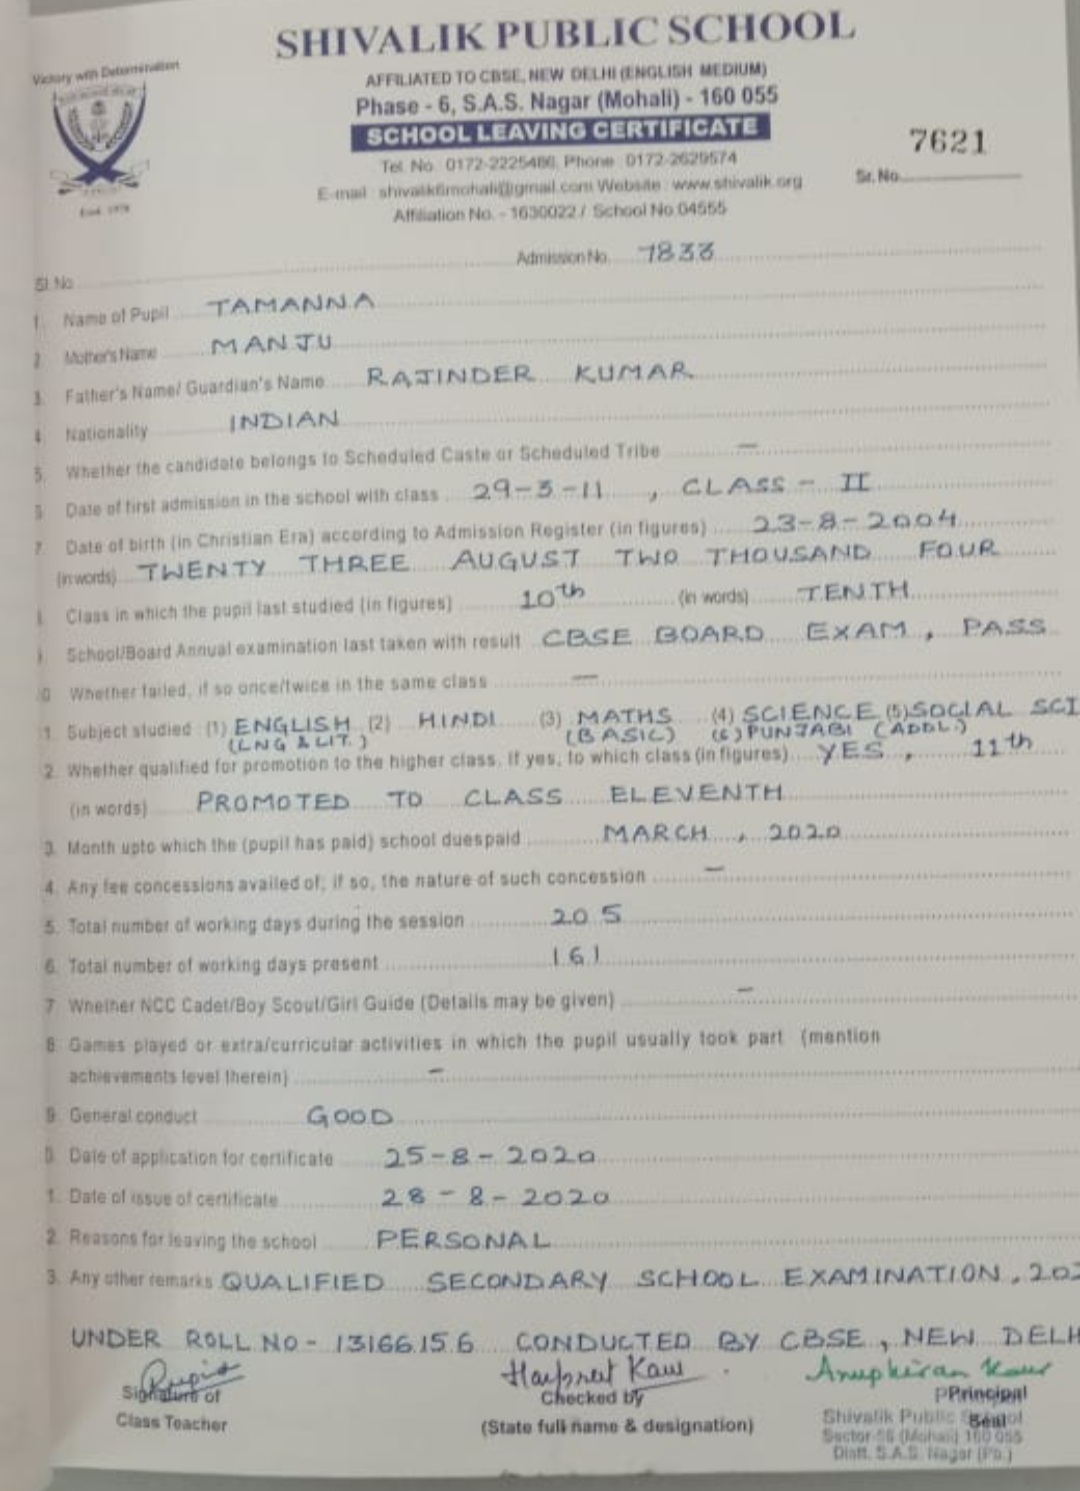 SHIVALIK PUBLIC SCHOOL
Victory with Determination
AFFILIATED TO CBSE, NEW DELHI (ENGLISH MEDIUM)
Phase - 6, S.A.S. Nagar (Mohali) - 160 055
SCHOOL LEAVING CERTIFICATE
7621
Tel. No. 0172-2225486, Phone 0172-2629574
Sr. No.
E-mail : shivalik6mohali@gmail.com Website : www.shivalik.org
Affiliation No. - 1630022 / School No 04555
Admission No. 7833
Sl. No
1. Name of Pupil TAMANNA
2 Mother's Name MANJU
3. Father's Name/ Guardian's Name RAJINDER KUMAR
4 Nationality INDIAN
5. Whether the candidate belongs to Scheduled Caste or Scheduled Tribe —
6 Date of first admission in the school with class 29-3-11 , CLASS - II
7. Date of birth (in Christian Era) according to Admission Register (in figures) 23-8-2004
(in words) TWENTY THREE AUGUST TWO THOUSAND FOUR
Class in which the pupil last studied (in figures) 10th (in words) TENTH
School/Board Annual examination last taken with result CBSE BOARD EXAM, PASS
0 Whether failed, if so once/twice in the same class —
1. Subject studied (1) ENGLISH (2) HINDI (3) MATHS (4) SCIENCE (5) SOCIAL SCI
(LNG & LIT.) (BASIC) (6) PUNJABI (ADDL.)
2. Whether qualified for promotion to the higher class, if yes, to which class (in figures) YES, 11th
(in words) PROMOTED TO CLASS ELEVENTH
3. Month upto which the (pupil has paid) school duespaid MARCH, 2020
4. Any fee concessions availed of, if so, the nature of such concession —
5. Total number of working days during the session 205
6. Total number of working days present 161
7 Whether NCC Cadet/Boy Scout/Girl Guide (Details may be given) —
8. Games played or extra/curricular activities in which the pupil usually took part (mention
achievements level therein) —
9. General conduct GOOD
0. Date of application for certificate 25-8-2020
1. Date of issue of certificate 28-8-2020
2. Reasons for leaving the school PERSONAL
3. Any other remarks QUALIFIED SECONDARY SCHOOL EXAMINATION, 202
UNDER ROLL NO- 13166156 CONDUCTED BY CBSE, NEW DELH
Harpreet Kaur Anupkiran Kaur
Signature of Checked by Principal
Class Teacher (State full name & designation) Seal
Shivalik Public School
Sector-56 (Mohali) 160 055
Distt. S.A.S. Nagar (Pb.)